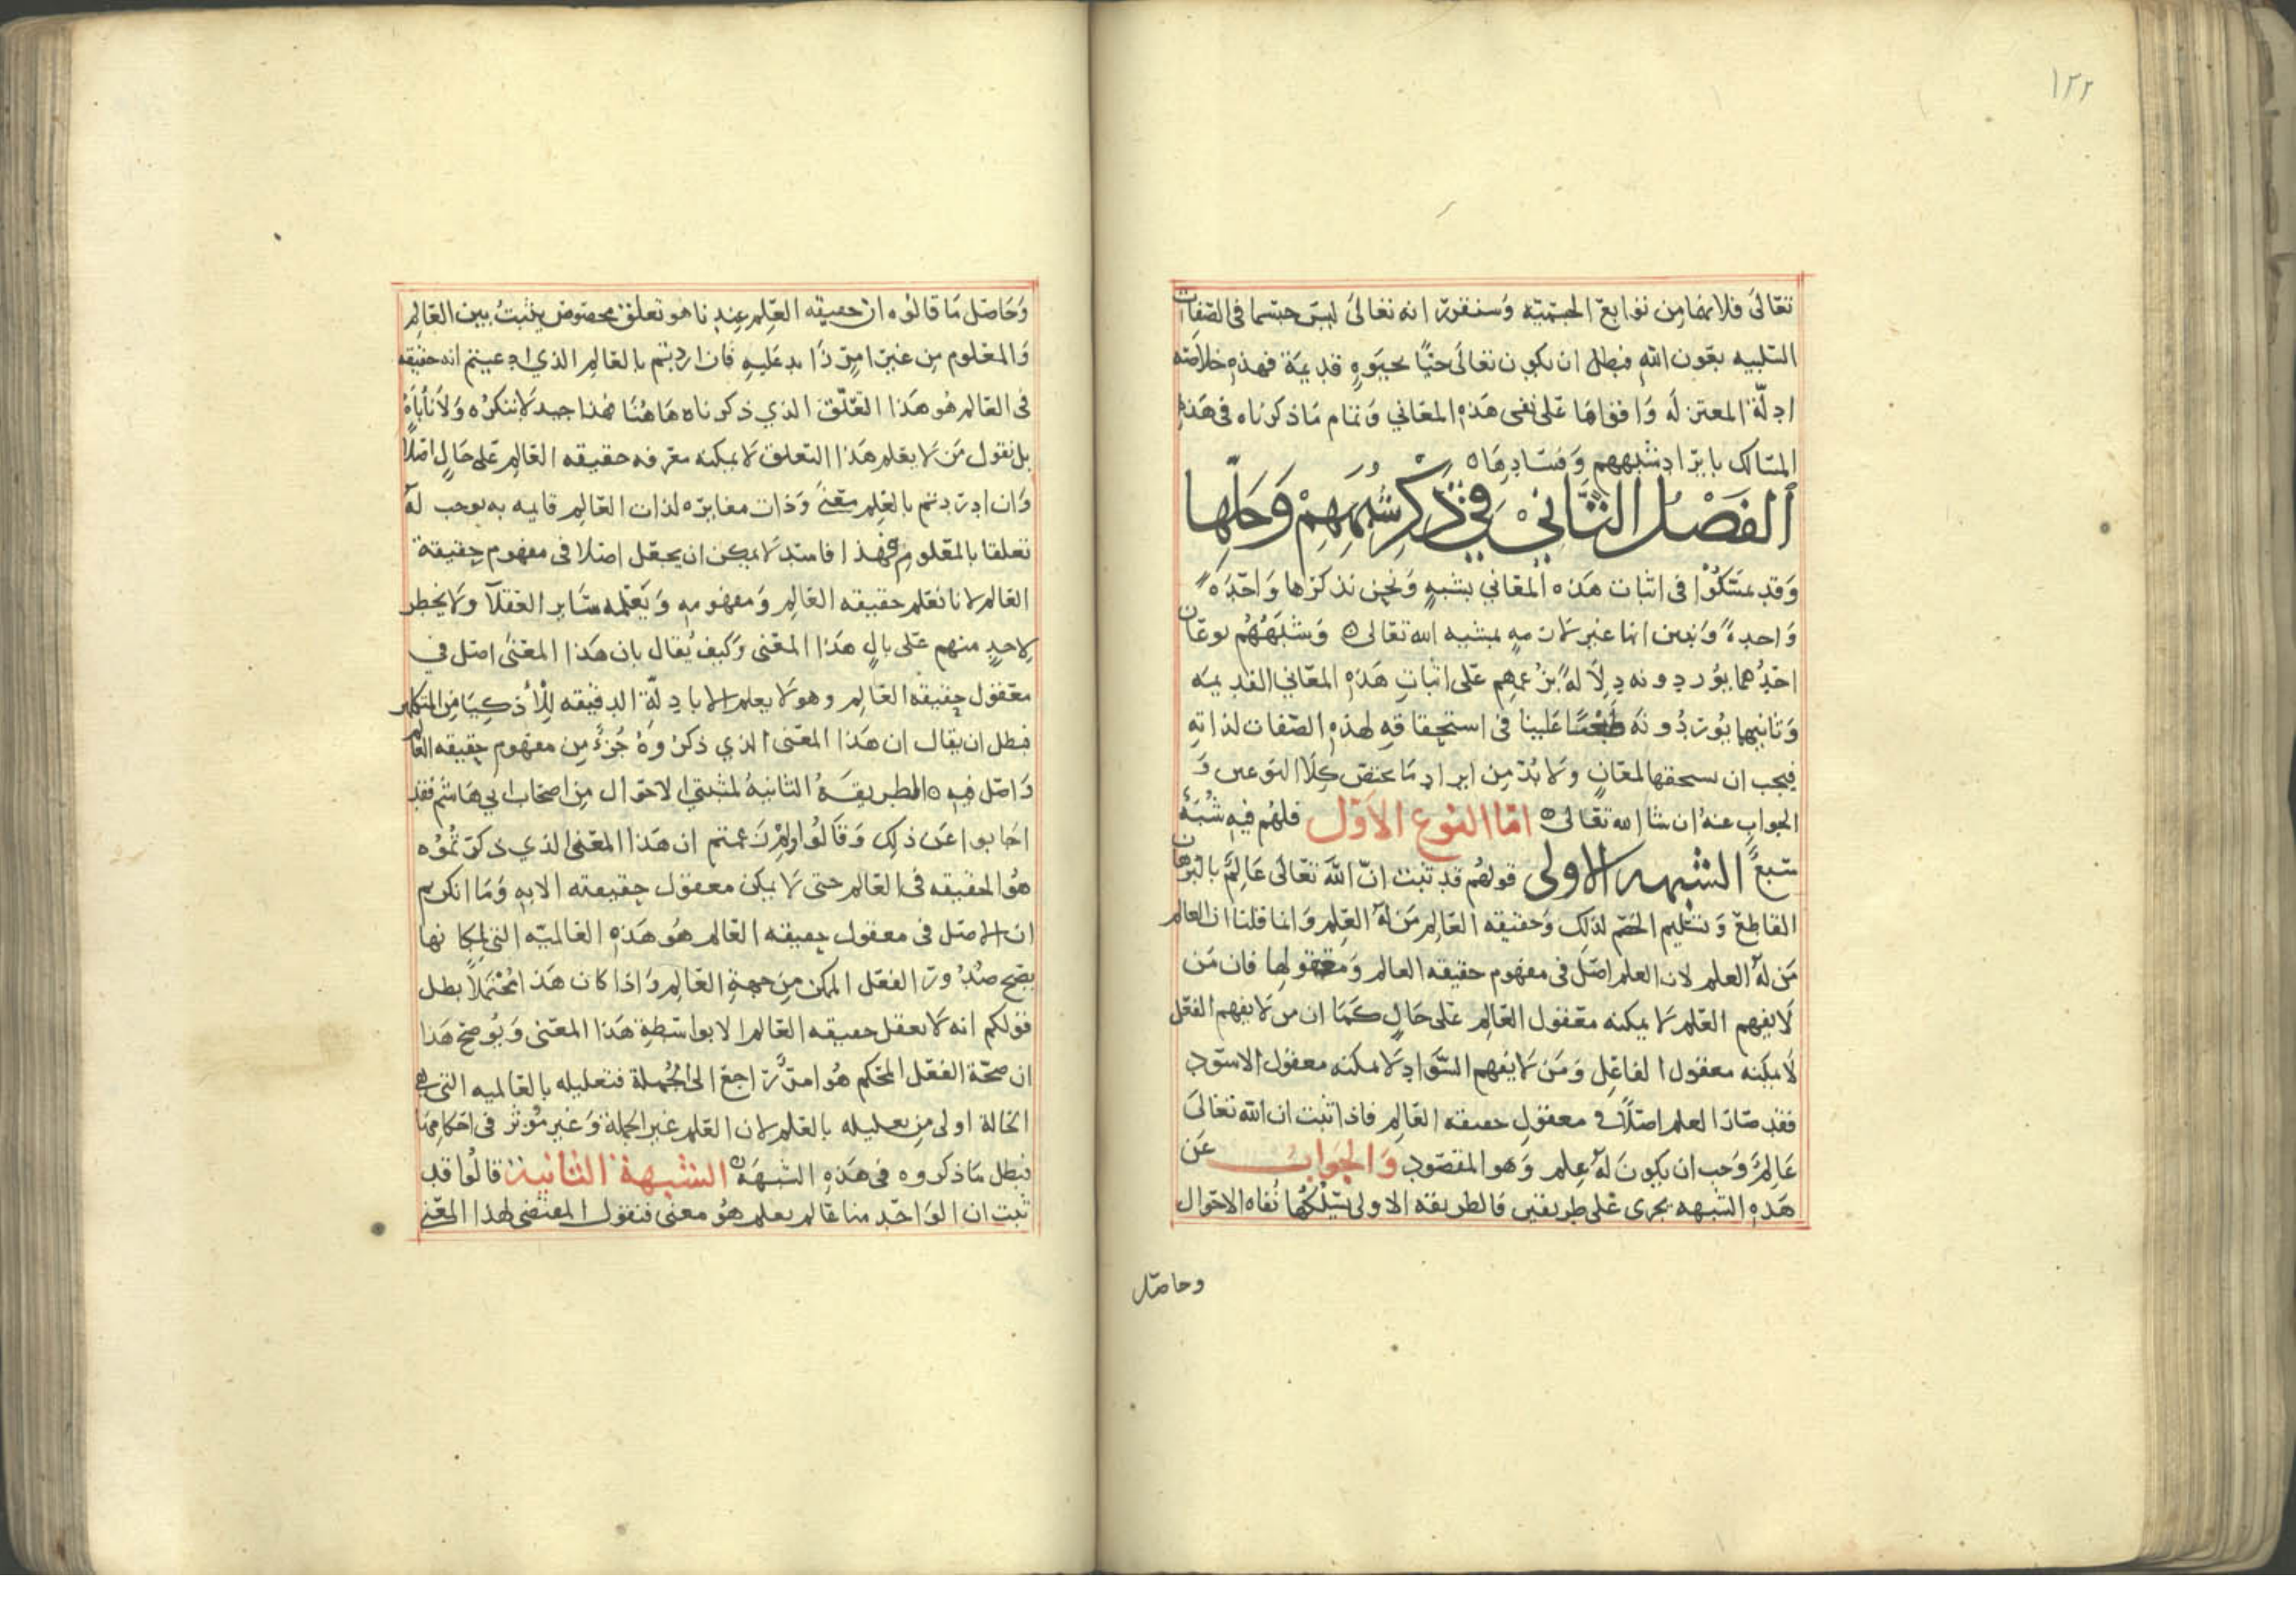 ١٢٢
تعَالىَ فلانهَا مِن توَابع الجسميّه وَسنقرّر انه تعَالىَ ليسَ جسما فى الصّفات
السلبيه بعَون الله فبطل ان يكون تعَالىَ حيًّا بحيَوه قديمَة فهذه خلاَصَه
ادلّة المعتزلَه وَافوَاهَا عَلى نفى هَذه المعَاني وَتمام مَا ذكرناه فى هَذه
المسَالك بايرَاد شبههم وَفسَادِهَا ه
الفَصْلُ الثَّانيْ فِي ذِكرِ شُبَهِهِمْ وَحَلِّهَا
وَقد تمسَّكُوْا فى اثبات هَذه المعَاني بشبهٍ وَنحن نذكرُها وَاحدَه
وَاحدةً وَنبين انها غير لازمهٍ بمشيه الله تعَالى ه وَشبَهُهُم نوعَان
احَدُهما يوُردونه دِلاَلةً بزعمِهِم عَلى اثباتِ هَذِهِ المعَاني القديمَه
وَثانيهما يوُردُونَه طعنًا عَلينا فى استحقاقهِ لهذه الصّفات لذاتهِ
فيجب ان يسحقها لمعَانٍ وَلاَ بُدّ مِن ايرادِ مَا يختصّ كِلاَ النوعين وَ
الجوابِ عنهُ ان شا الله تعَالى ه امّا النوع الاَوّل فلهُم فيهِ شُبَهٌ
سَبعٌ الشبهه الاولى قولهُم قد ثبت انّ اللهَ تعَالىَ عَالِمٌ بالبُرهَان
القاطِعَ وَتسْليم الخَصْم لذَلِك وَحقيقه العَالِمِ مَن لهُ العِلم وَانما قلنا ان العالم
مَن لهُ العلم لان العلم اصَل فى مفهوم حقيقه العالم وَمعقولها فان مَن
لاَ يفهم العَلم لاَ يمكنه مَعقول العَالِم عَلى حَالٍ كَمَا ان من لا يفهم الفعَل
لاَ يمكنه معقول الفاعِل وَمَن لاَ يَفهَم السَّوَاد لاَ يمكنه معقول الاسوَد
فقد صَارَ العلم اصلاً فى معقولِ حقيقه العَالِم فاذا ثبت ان الله تعَالىَ
عَالِمٌ وَجب ان يكونَ لهُ عِلم وَهو المقصَود وَالجَوَابُ عَن
هَذِهِ الشبهه يجرى عَلى طريقين فالطريقه الاولى يسْلكهُا نُفاه الاحوَال
وحاصَل
وَحَاصَل مَا قالوُه ان حقيقه العِلم عِندنا هو تعلق مخصوص يثبتُ بين العَالِم
وَالمعَلوم مِن غير امرٍ زَايد عَليهِ فان اردتم بالعَالِم الذي ادعيتم انه حقيقه
فى العَالم هُو هَذا التعَلّق الذي ذكرناه هَا هُنَا فهذا جيد لاَ ننكرُه وَلاَ نأباَهُ
بل نقول مَن لاَ يعَلم هَذا التعلق لاَ يمكنه معَرفه حقيقه العَالِم عَلى حَالٍ اصَلاً
وَان اردتم بالعِلم معَنىً وَذات مغايرَه لذات العَالِم قايمه به يوجب لهُ
تعلقا بالمعَلوم فهذا فاسَد لاَ يمكن ان يجعَل اصَلا فى مفهوم حِقيقة
العَالم لانا نعَلم حقيقه العَالِم وَمفهومه وَيَعَلمه سَاير العقلآ ولاَ يخطر
لاحدٍ منهم عَلى بالٍ هَذا المعَنى وَكيفَ يُقال بان هَذا المعَنىٰ اصَل في
معَقول حِقيقه العَالِم وهو لاَ يعلم الا بادِلّةِ الدقيقه لِلْأذكِيَا مِن المتكلمين
فبطل ان يقال ان هَذا المعَنى الذي ذكرُوهُ جُزءٌ من مفهوم حِقيقه العَالم
وَاصَل فيهِ ه الطريقَهُ الثانيهُ لمثبتي الاحوَال مِن اصحَاب ابي هَاشم فقد
اجَابوا عَن ذلِك وَقَالوُا ولم زعَمتم ان هَذا المعَنى الذي ذكرتموُه
هوُ الحقيقه فى العَالم حتى لاَ يمكن معقول حِقيقته الا به وَمَا انكرتم
ان الاصَل فى معقول حقيقه العَالم هُو هَذِهِ العَالميّه التى لمكانها
يصَح صُدُورُ الفعَل الممكن مِن جهةِ العَالِم وَاذا كان هَذا مُحْتَملاً بطل
قولكم انه لاَ يعقل حقيقه العَالم الا بواسَطةِ هَذا المعَنى وَيوُضح هَذا
ان صحّة الفعَل المحَكم هُو امرٌ رَاجع الى الجُملة فتعليله بالعَالميه التى هى
الحَالة اولى من تعليله بالعَلم لان العَلم غير الجملة وَغير مُؤثر فى احَكامِهَا
فبطل مَا ذكروه فى هَذِهِ الشبهَه ه الشبهة الثانية قالوُا قد
ثبت ان الوَاحَد منا عَالم بعلم هُو معنى فنقول المقتضى لهذا المعَنى